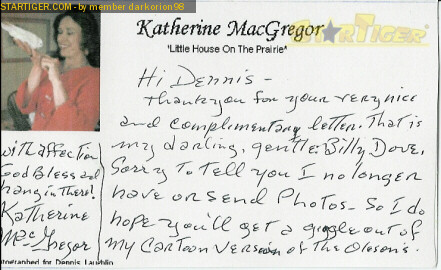 STARTIGER.COM - by member darkorion98
STARTIGER
Katherine MacGregor
"Little House On The Prairie"
Hi Dennis -
Thank you for your very nice
and complimentary letter. That is
my darling, gentle: Billy Dove.
Sorry to tell you I no longer
have or send Photos - So I do
hope you'll get a giggle out of
my Cartoon Version of The Olesons.
with affection
God Bless and
hang in there!
Katherine
MacGregor
tographed for Dennis Laughlin